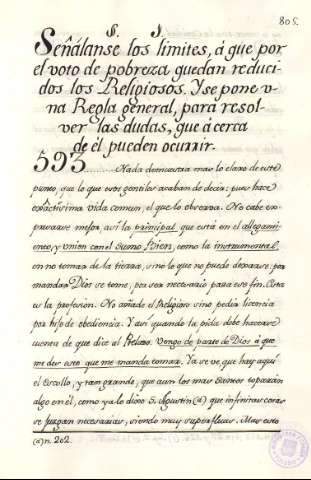 805.
§. I.
Señálanse los limites, á que por
el voto de pobreza quedan reduci-
dos los Religiosos. Y se pone v-
na Regla general, para resol-
ver las dudas, que á cerca
de él pueden ocurrir.
593 Nada demuestra mas lo claro de este
punto, q.e lo que esos gentiles acaban de decir: pues hace
exactissima vida comun, el que lo observa. No cabe ex-
presarse mejor, assi la principal que está en el allegami-
ento, y union con el Sumo Bien, como la instrumental,
en no tomar de la tierra, sino lo que no puede dexarse: por
mandar Dios se tome, por ser necesario para ese fin. Esta
es la profesion. No añade el Religioso sino pedir licencia
por hijo de obediencia. Y asi quando la pida debe hacerse
cuenta de que dice al Prelado. Vengo de parte de Dios á que
me des esto que me manda tomar. Ya se ve, que hay aqui
el escollo, y tan grande, que aun los mas Santos toparán
algo en él, como ya lo dixo S. Agustin (a) que infinitas cosas
se juzgan necesarias, siendo muy superfluas. Mas esto
(a) n. 202.